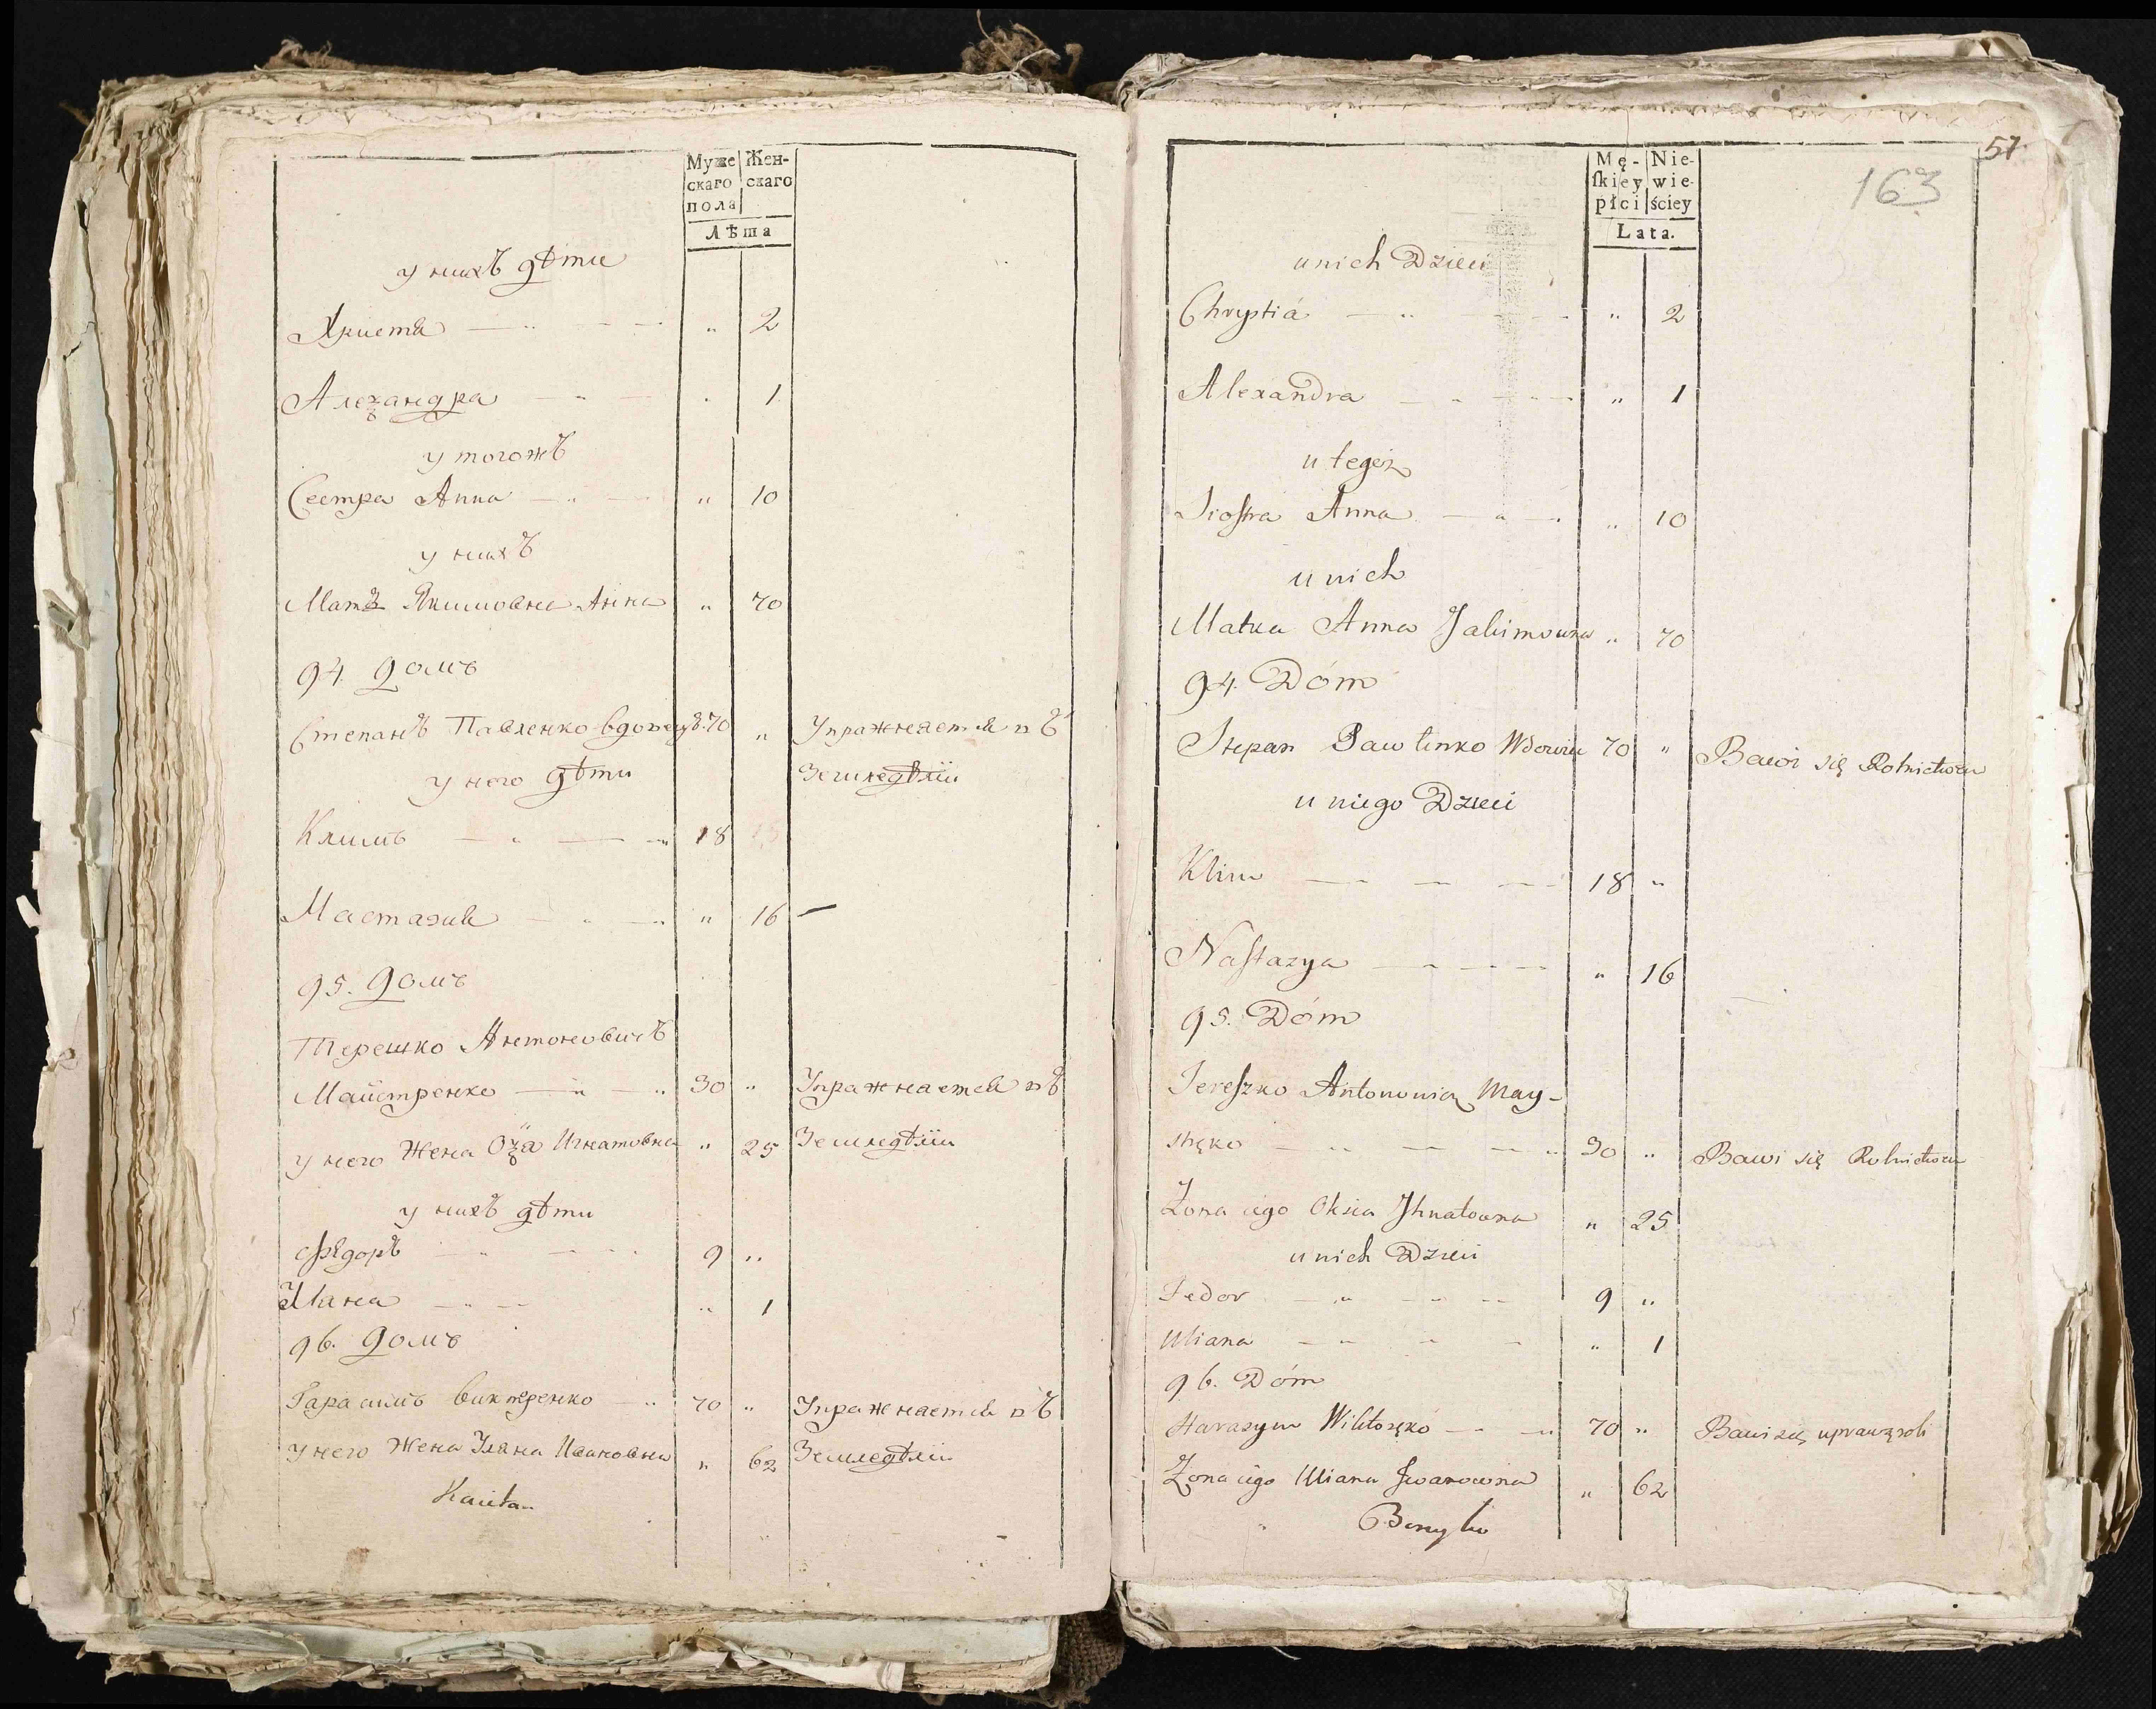 Муже Жен-
скаго скаго
пола
Лѣта
у нихъ дѣти
Христя „ 2
Алеѯандра „ 1
у тогожъ
Сестра Анна „ 10
у нихъ
Матъ Якимовна Анна „ 70
94. Домъ
Степанъ Павленко вдовецъ 70 „ Упражняется въ
у него дѣти Земледѣліи
Климъ 18
Мастазия „ 16 —
95. Домъ
Терешко Антоновичъ
Майстренко 30 „ Упражнается въ
у него Жена Оѯа Игнатовна „ 25 Земледѣліи
у нихъ дѣти
Ѳедоръ 9 „
Уляна „ 1
96. Домъ
Гарасимъ Виктренко 70 „ Упражнается въ
у него Жена Уляна Ивановна „ 62 Земледѣліи
57
163
Mę- Nie-
ſkiey wie-
płci ściey
Lata.
u nich Dzieci
Chrystia „ 2
Alexandra „ 1
u tegoż
Siostra Anna „ 10
u nich
Matka Anna Jakimowna „ 70
94. Dóm
Stepan Pawlenko Wdowiec 70 „ Bawi się Rolnictwem
u niego Dzieci
Klim 18 „
Naſtazya „ 16
95. Dóm
Tereſzko Antonowicz May-
stręko 30 „ Bawi się Rolnictwem
Żona iego Oksia Ihnatowna „ 25
u nich Dzieci
Fedor 9 „
Uliana „ 1
96. Dóm
Harasym Wiktoręko 70 „ Bawi się uprawą roli
Żona iego Uliana Iwanowna „ 62